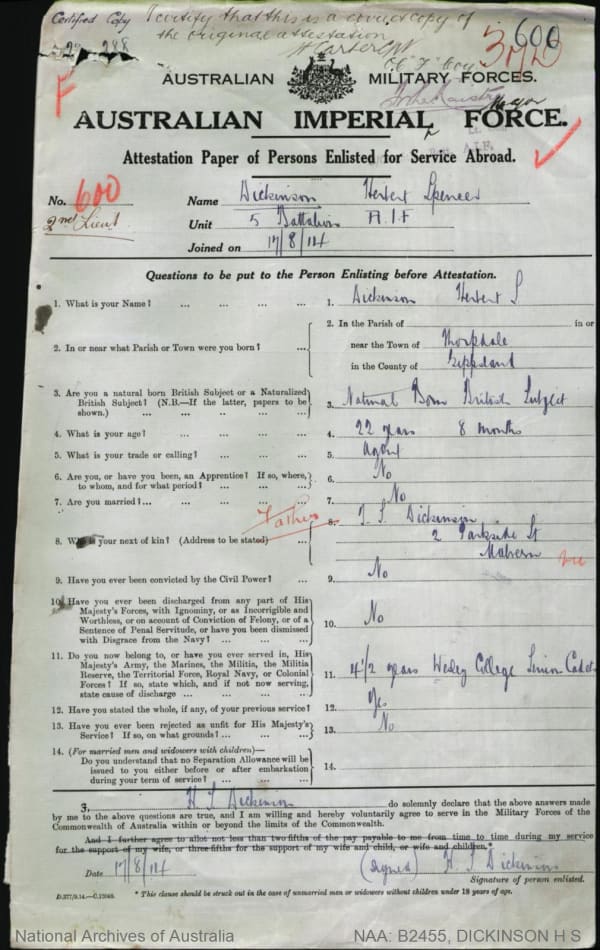 Certified Copy I certify that this is a correct copy of
the original attestation
600
AUSTRALIAN MILITARY FORCES.
AUSTRALIAN IMPERIAL FORCE.
A.I.F.
Attestation Paper of Persons Enlisted for Service Abroad.
No. 600 Name Dickinson Herbert Spencer
2nd Lieut Unit 5 Battalion A.I.F
Joined on 17/8/14
Questions to be put to the Person Enlisting before Attestation.
1. What is your Name? ... ... ... ... 1. Dickinson Herbert S
2. In or near what Parish or Town were you born? ... 2. In the Parish of in or
near the Town of Thorpdale
in the County of Gippsland
3. Are you a natural born British Subject or a Naturalized
British Subject? (N.B.—If the latter, papers to be
shown.) ... ... ... ... 3. Natural Born British Subject
4. What is your age? ... ... ... ... 4. 22 years 8 months
5. What is your trade or calling? ... ... ... 5. Agent
6. Are you, or have you been, an Apprentice? If so, where,
to whom, and for what period? ... ... 6. No
7. Are you married? ... ... ... ... 7. No
8. Who is your next of kin? (Address to be stated) ... Father 8. T. S. Dickinson
2 Parkside St
Malvern Vic
9. Have you ever been convicted by the Civil Power? ... 9. No
10. Have you ever been discharged from any part of His
Majesty's Forces, with Ignominy, or as Incorrigible and
Worthless, or on account of Conviction of Felony, or of a
Sentence of Penal Servitude, or have you been dismissed
with Disgrace from the Navy? ... ... ... 10. No
11. Do you now belong to, or have you ever served in, His
Majesty's Army, the Marines, the Militia, the Militia
Reserve, the Territorial Force, Royal Navy, or Colonial
Forces? If so, state which, and if not now serving,
state cause of discharge ... ... ... 11. 4 1/2 years Wesley College Senior Cadets
12. Have you stated the whole, if any, of your previous service? 12. Yes
13. Have you ever been rejected as unfit for His Majesty's
Service? If so, on what grounds? ... ... 13. No
14. (For married men and widowers with children)—
Do you understand that no Separation Allowance will be
issued to you either before or after embarkation
during your term of service? ... ... ... 14.
I, H. S. Dickinson do solemnly declare that the above answers made
by me to the above questions are true, and I am willing and hereby voluntarily agree to serve in the Military Forces of the
Commonwealth of Australia within or beyond the limits of the Commonwealth.
And I further agree to allot not less than two-fifths of the pay payable to me from time to time during my service
for the support of my wife, or three-fifths for the support of my wife and child, or wife and children.*
Date 17/8/14 (signed) H. S. Dickinson
Signature of person enlisted.
* This clause should be struck out in the case of unmarried men or widowers without children under 18 years of age.
National Archives of Australia NAA: B2455, DICKINSON H S